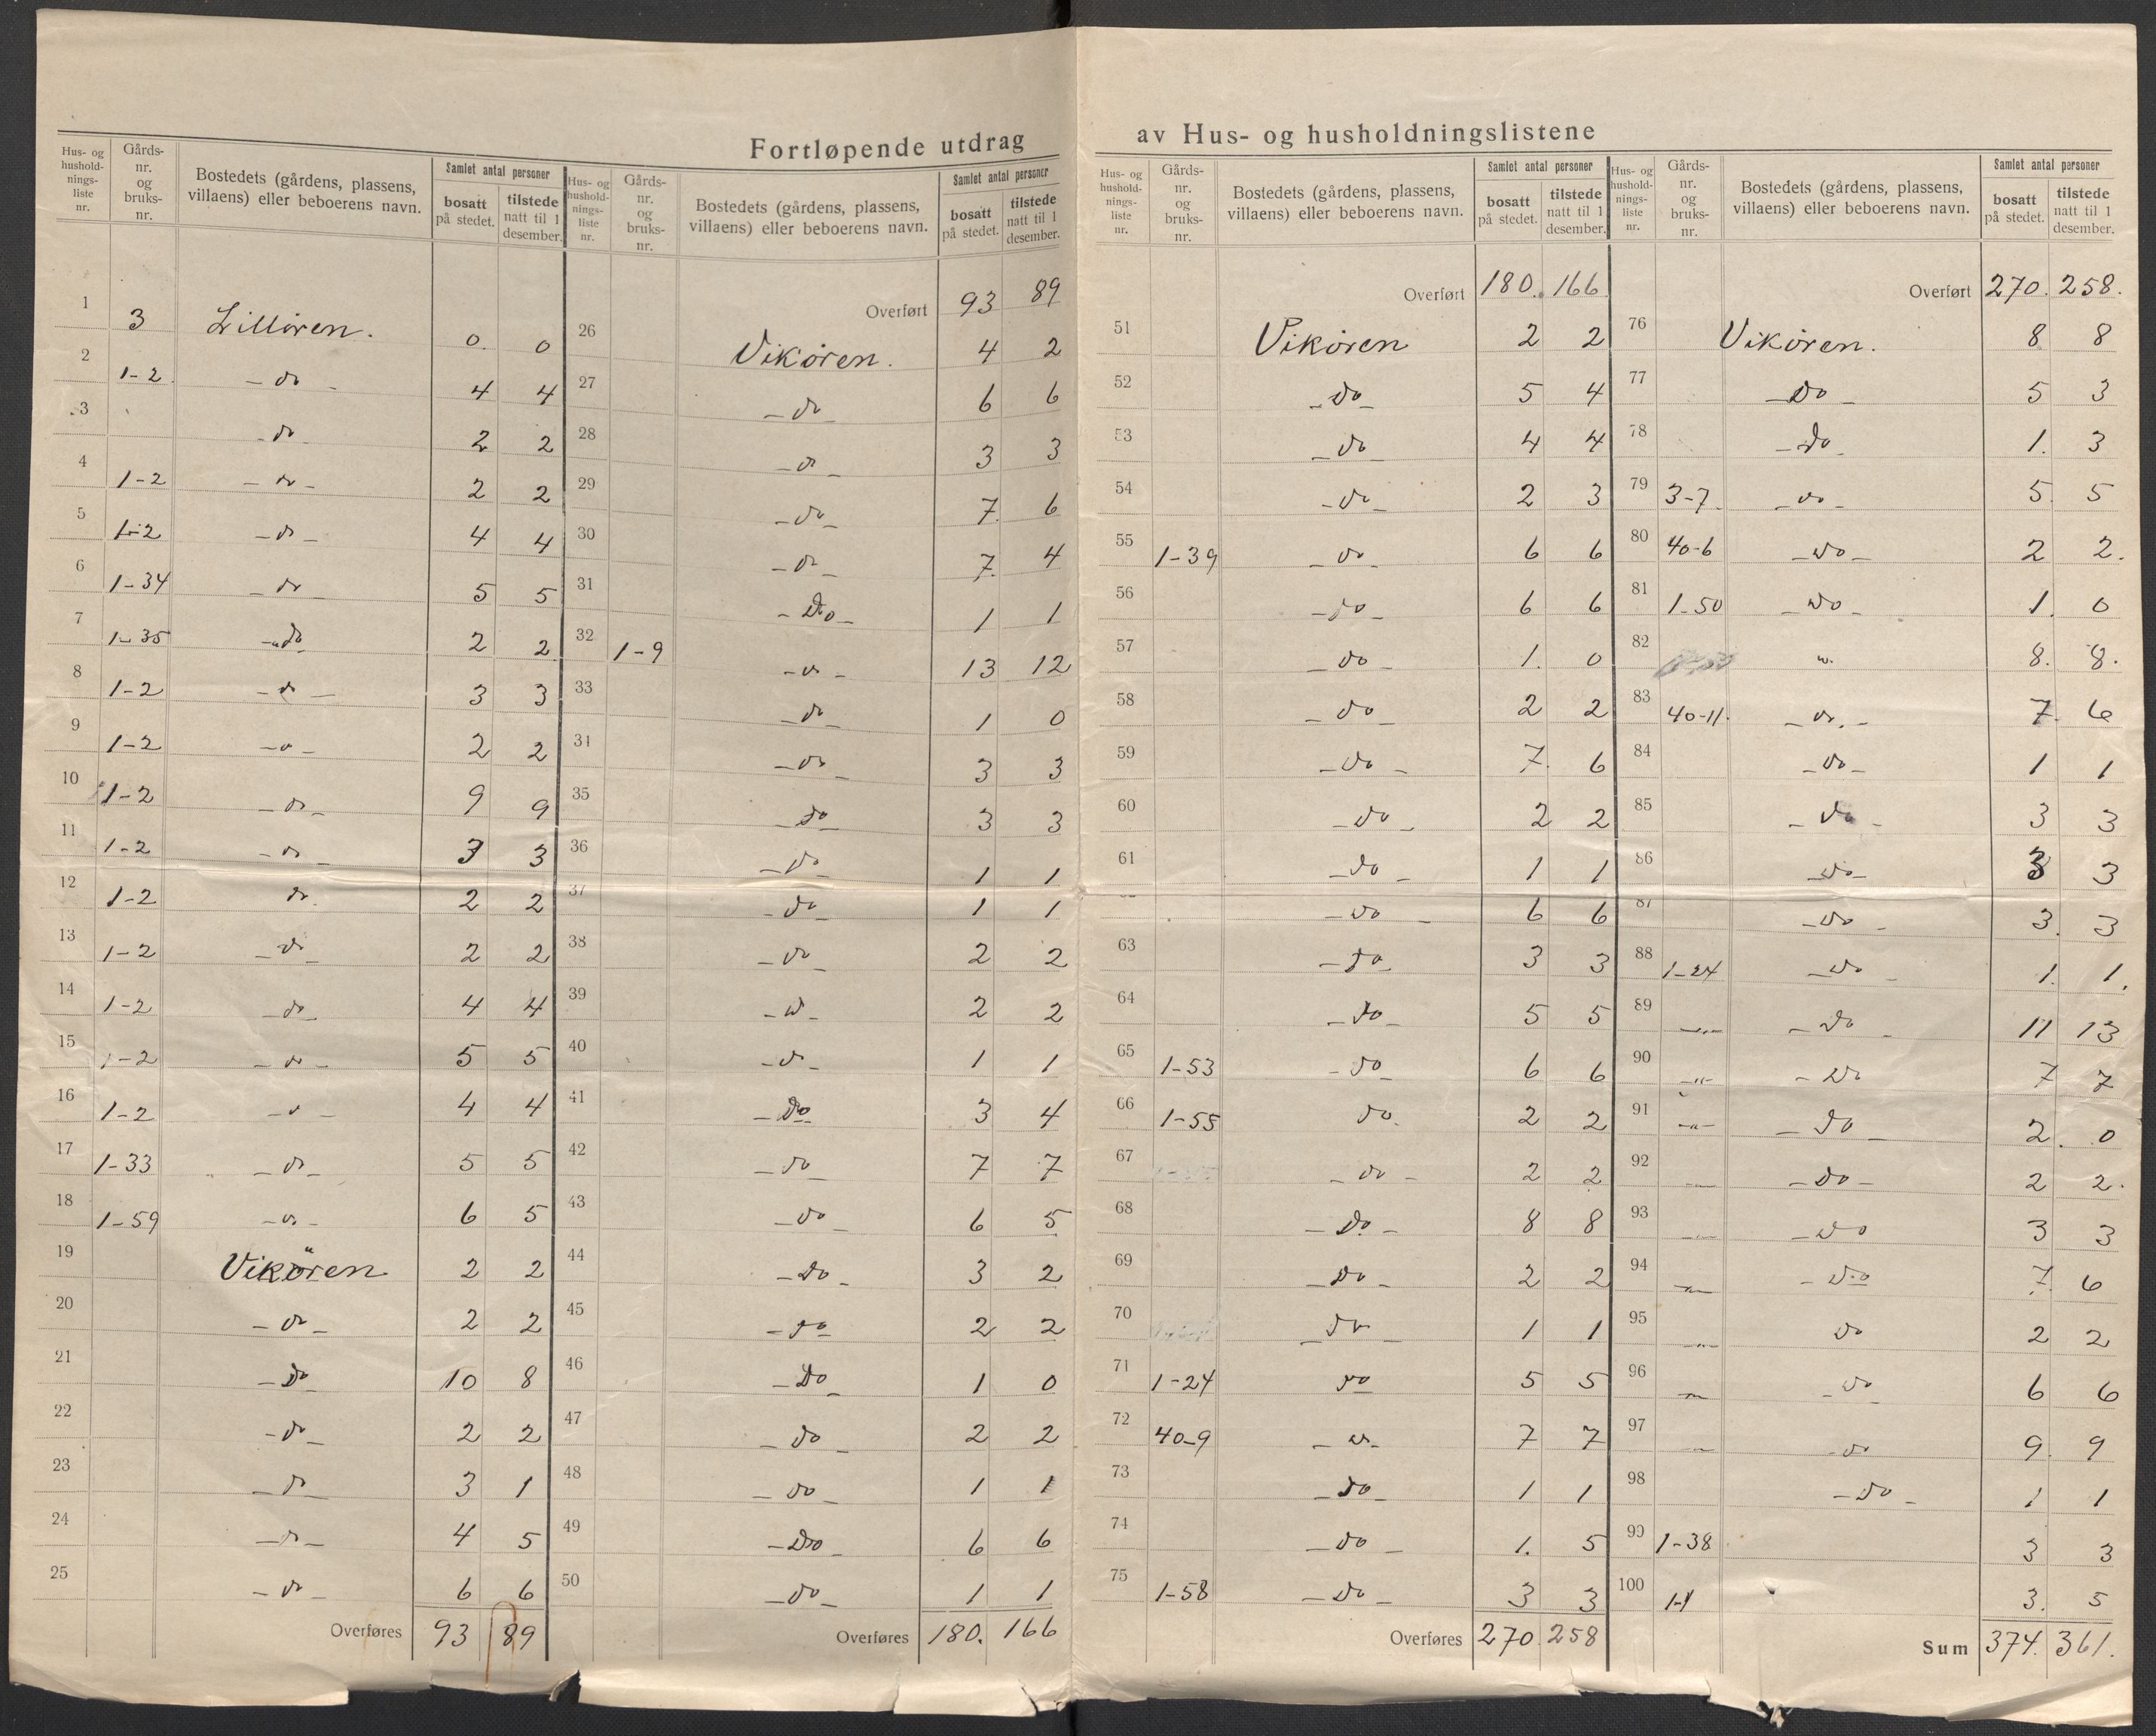 Fortløpende utdrag av Hus- og husholdningslistene
Hus- og hushold-nings-liste nr. Gårds-nr. og bruks-nr. Bostedets (gårdens, plassens, villaens) eller beboerens navn. Samlet antal personer bosatt på stedet. tilstede natt til 1 desember.
1 3 Lillören. 0. 0
2 1-2 - do - 4 4
3 - do - 2 2
4 1-2 - do - 2 2
5 1-2 - do - 4 4
6 1-34 - do - 5 5
7 1-35 - do - 2 2
8 1-2 - do - 3 3
9 1-2 - do - 2 2
10 1-2 - do - 9 9
11 1-2 - do - 3 3
12 1-2 do. 2 2
13 1-2 - do - 2 2
14 1-2 - do - 4 4
15 1-2 - do - 5 5
16 1-2 - do - 4 4
17 1-33 - do - 5 5
18 1-59 - do - 6 5
19 Vikören 2 2
20 - do - 2 2
21 - Do - 10 8
22 - do - 2 2
23 - do - 3 1
24 - do - 4 5
25 - do - 6 6
Overføres 93 89
Hus- og hushold-nings-liste nr. Gårds-nr. og bruks-nr. Bostedets (gårdens, plassens, villaens) eller beboerens navn. Samlet antal personer bosatt på stedet. tilstede natt til 1 desember.
Overført 93 89
26 Vikören. 4 2
27 - do - 6 6
28 - do - 3 3
29 - do - 7. 6
30 - do - 7. 4
31 - Do - 1 1
32 1-9 - do - 13 12
33 - do - 1 0
34 - do - 3 3
35 - do - 3 3
36 - do - 1 1
37 - do - 1 1
38 - do - 2 2
39 - do - 2 2
40 - do - 1 1
41 - Do - 3 4
42 - do - 7 7
43 - do - 6 5
44 - Do - 3 2
45 - do - 2 2
46 - Do - 1 0
47 - do - 2 2
48 - do - 1 1
49 - Do - 6 6
50 - do - 1 1
Overføres 180. 166
Hus- og hushold-nings-liste nr. Gårds-nr. og bruks-nr. Bostedets (gårdens, plassens, villaens) eller beboerens navn. Samlet antal personer bosatt på stedet. tilstede natt til 1 desember.
Overført 180. 166
51 Vikören 2 2
52 - Do - 5 4
53 - do - 4 4
54 - do - 2 3
55 1-39 - do - 6 6
56 - do - 6 6
57 - do - 1. 0
58 - do - 2 2
59 - do - 7. 6
60 - do - 2 2
61 - do - 1 1
- do - 6 6
63 - do - 3 3
64 - do - 5 5
65 1-53 - do - 6 6
66 1-55 do. 2 2
67 - do - 2 2
68 - Do - 8 8
69 - Do - 2 2
70 - do - 1 1
71 1-24 do 5 5
72 40-9 - do - 7 7
73 - Do - 1 1
74 - do - 1. 5
75 1-58 - Do - 3 3
Overføres 270 258
Hus- og hushold-nings-liste nr. Gårds-nr. og bruks-nr. Bostedets (gårdens, plassens, villaens) eller beboerens navn. Samlet antal personer bosatt på stedet. tilstede natt til 1 desember.
Overført 270. 258.
76 Vikören. 8 8
77 - Do - 5 3
78 - do - 1. 3
79 3-7. - do - 5 5
80 40-6 - do - 2 2.
81 1-50 - do - 1. 0
82 do. 8. 8.
83 40-11. - do. - 7. 6
84 - do - 1 1
85 - do - 3 3
86 - do - 3 3
87 - do - 3. 3
88 1-24 - do - 1. 1.
89 -"- - do - 11 13
90 -"- - do 7 7
91 -"- - do - 2. 0
92 -"- - Do - 2 2.
93 -"- - do 3 3
94 -"- - do 7. 6
95 -"- do 2 2
96 -"- - do 6 6
97 -"- - do 9. 9
98 - do - 1 1
99 1-38 3 3
100 1-1 3. 5
Sum 374. 361.